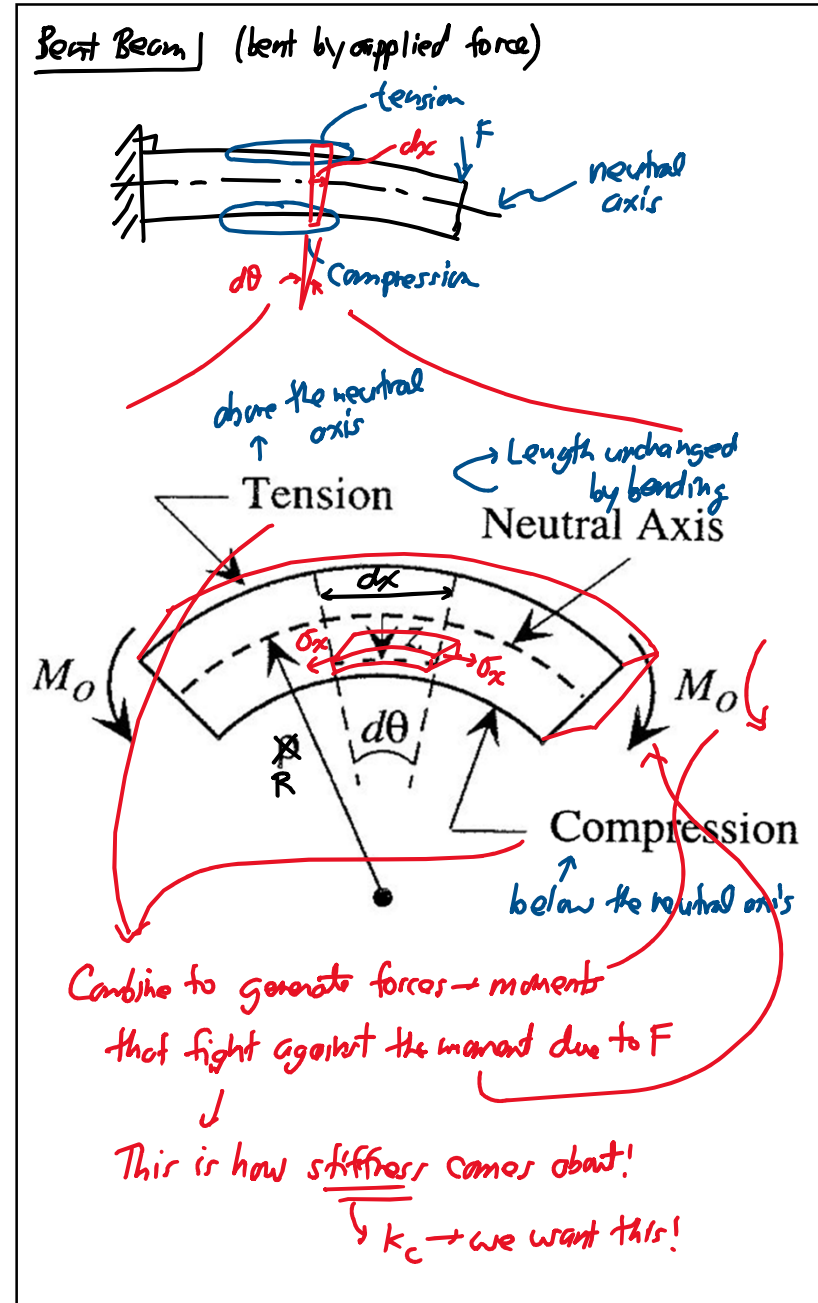 Bent Beam (bent by applied force)
tension
dx
F
neutral
axis
dθ
Compression
above the neutral
axis
Length unchanged
by bending
Tension
Neutral Axis
dx
z
σx
σx
M_O
M_O
dθ
ρ
R
Compression
below the neutral axis
Combine to generate forces → moments
that fight against the moment due to F
This is how stiffness comes about!
k_c → we want this!